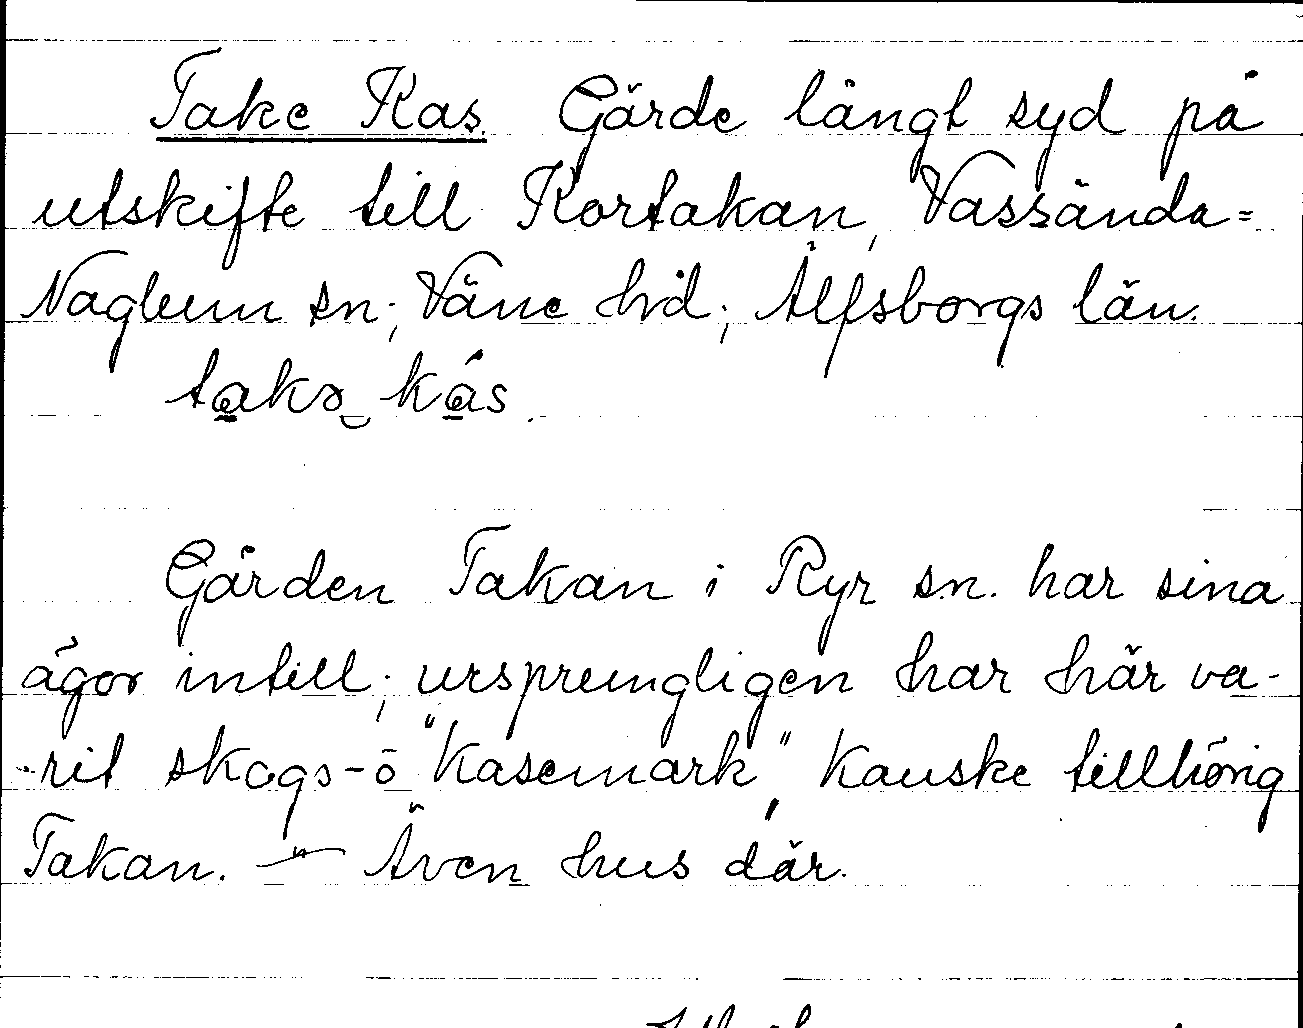 Take Kas. Gärde långt syd på
utskifte till Kortakan, Vassända=
Naglum sn; Väne hd; Älfsborgs län.
takə kás.
Gården Takan i Ryr sn. har sina
ägor intill; ursprungligen har här va-
rit skogs-ö "Kasemark", Kanske tillhörig
Takan. — Även hus där.